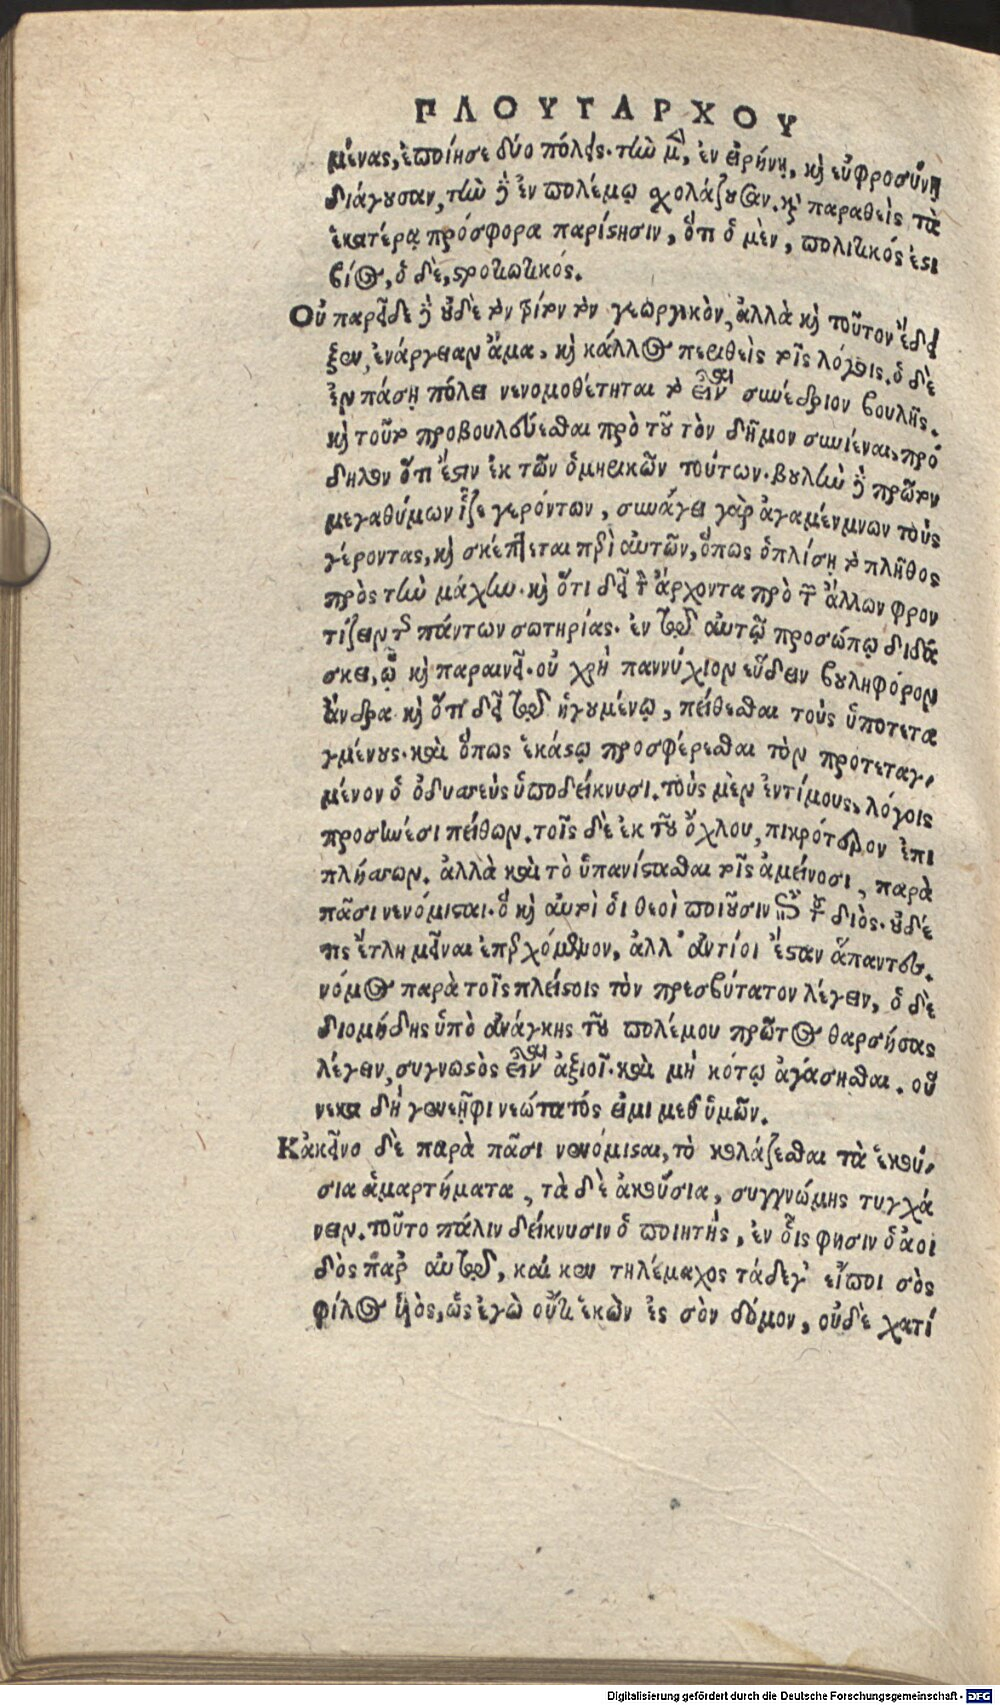 ΠΛΟΥΤΑΡΧΟΥ
μένας, ἐποίησε δύο πόλεις. τὴν μὲν, ἐν εἰρήνῃ, καὶ εὐφροσύνῃ
διάγουσαν, τὴν δὲ ἐν πολέμῳ σχολάζουσαν. καὶ παραθεὶς τὰ
ἑκατέρᾳ πρόσφορα παρίστησιν, ὅτι ὁ μὲν, πολιτικός ἐστι
βίος, ὁ δὲ, στρατιωτικός.
Οὐ παρεῖδε δὲ οὐδὲ τὸν βίον τὸν γεωργικὸν, ἀλλὰ καὶ τοῦτον ἔδει
ξεν, ἐνάργειαν ἅμα, καὶ κάλλος περιθεὶς τοῖς λόγοις. ὃ δὲ
ἐν πάσῃ πόλει νενομοθέτηται τὸ εἶναι συνέδριον βουλῆς.
καὶ τοῦτο προβουλεύεσθαι πρὸ τοῦ τὸν δῆμον συνιέναι, πρό
δηλον ὅτι ἔστιν ἐκ τῶν ὁμηρικῶν τούτων. βουλὴν δὲ πρῶτον
μεγαθύμων ἷζε γερόντων, συνάγει γὰρ ἀγαμέμνων τοὺς
γέροντας, καὶ σκέπτεται περὶ αὐτῶν, ὅπως ὁπλίσῃ τὸ πλῆθος
πρὸς τὴν μάχην. καὶ ὅτι δεῖ τὸν ἄρχοντα πρὸ τῶν ἄλλων φρον
τίζειν τῆς πάντων σωτηρίας. ἐν τῷ αὐτῷ προσώπῳ διδά
σκει, ᾧ καὶ παραινεῖ. οὐ χρὴ παννύχιον εὕδειν βουληφόρον
ἄνδρα καὶ ὅτι δεῖ τῷ ἡγουμένῳ, πείθεσθαι τοὺς ὑποτετα
γμένους. καὶ ὅπως ἑκάστῳ προσφέρεσθαι τὸν προτεταγ,
μένον ὁ ὀδυσσεὺς ὑποδείκνυσι. τοὺς μὲν ἐντίμους, λόγοις
προσηνέσι πείθων. τοῖς δὲ ἐκ τοῦ ὄχλου, πικρότερον ἐπι
πλήσσων. ἀλλὰ καὶ τὸ ὑπανίστασθαι τοῖς ἀμείνοσι, παρὰ
πᾶσι νενόμισται. ὃ καὶ αὐτοὶ οἱ θεοὶ ποιοῦσιν ἐπὶ τοῦ διὸς. οὐδέ
τις ἔτλη μεῖναι ἐπερχόμενον, ἀλλ' ἀντίοι ἔσταν ἅπαντες.
νόμος παρὰ τοῖς πλείστοις τὸν πρεσβύτατον λέγειν, ὁ δὲ
διομήδης ὑπὸ ἀνάγκης τοῦ πολέμου πρῶτος θαρσήσας
λέγειν, συγνωστὸς εἶναι ἀξιοῖ. καὶ μὴ κότῳ ἀγάσησθαι. οὕ
νεκα δὴ γενεῆφι νεώτατός εἰμι μεθ' ὑμῶν.
Κἀκεῖνο δὲ παρὰ πᾶσι νενόμισται, τὸ κολάζεσθαι τὰ ἑκού,
σια ἁμαρτήματα, τὰ δὲ ἀκούσια, συγγνώμης τυγχά
νειν. τοῦτο πάλιν δείκνυσιν ὁ ποιητὴς, ἐν οἷς φησιν ὁ ἀοι
δὸς παρ' αὐτῷ, καί κεν τηλέμαχος τάδε γ' εἴποι σὸς
φίλος υἱὸς, ὡς ἐγὼ οὔτι ἑκὼν ἐς σὸν δόμον, οὐδὲ χατί
Digitalisierung gefördert durch die Deutsche Forschungsgemeinschaft - DFG